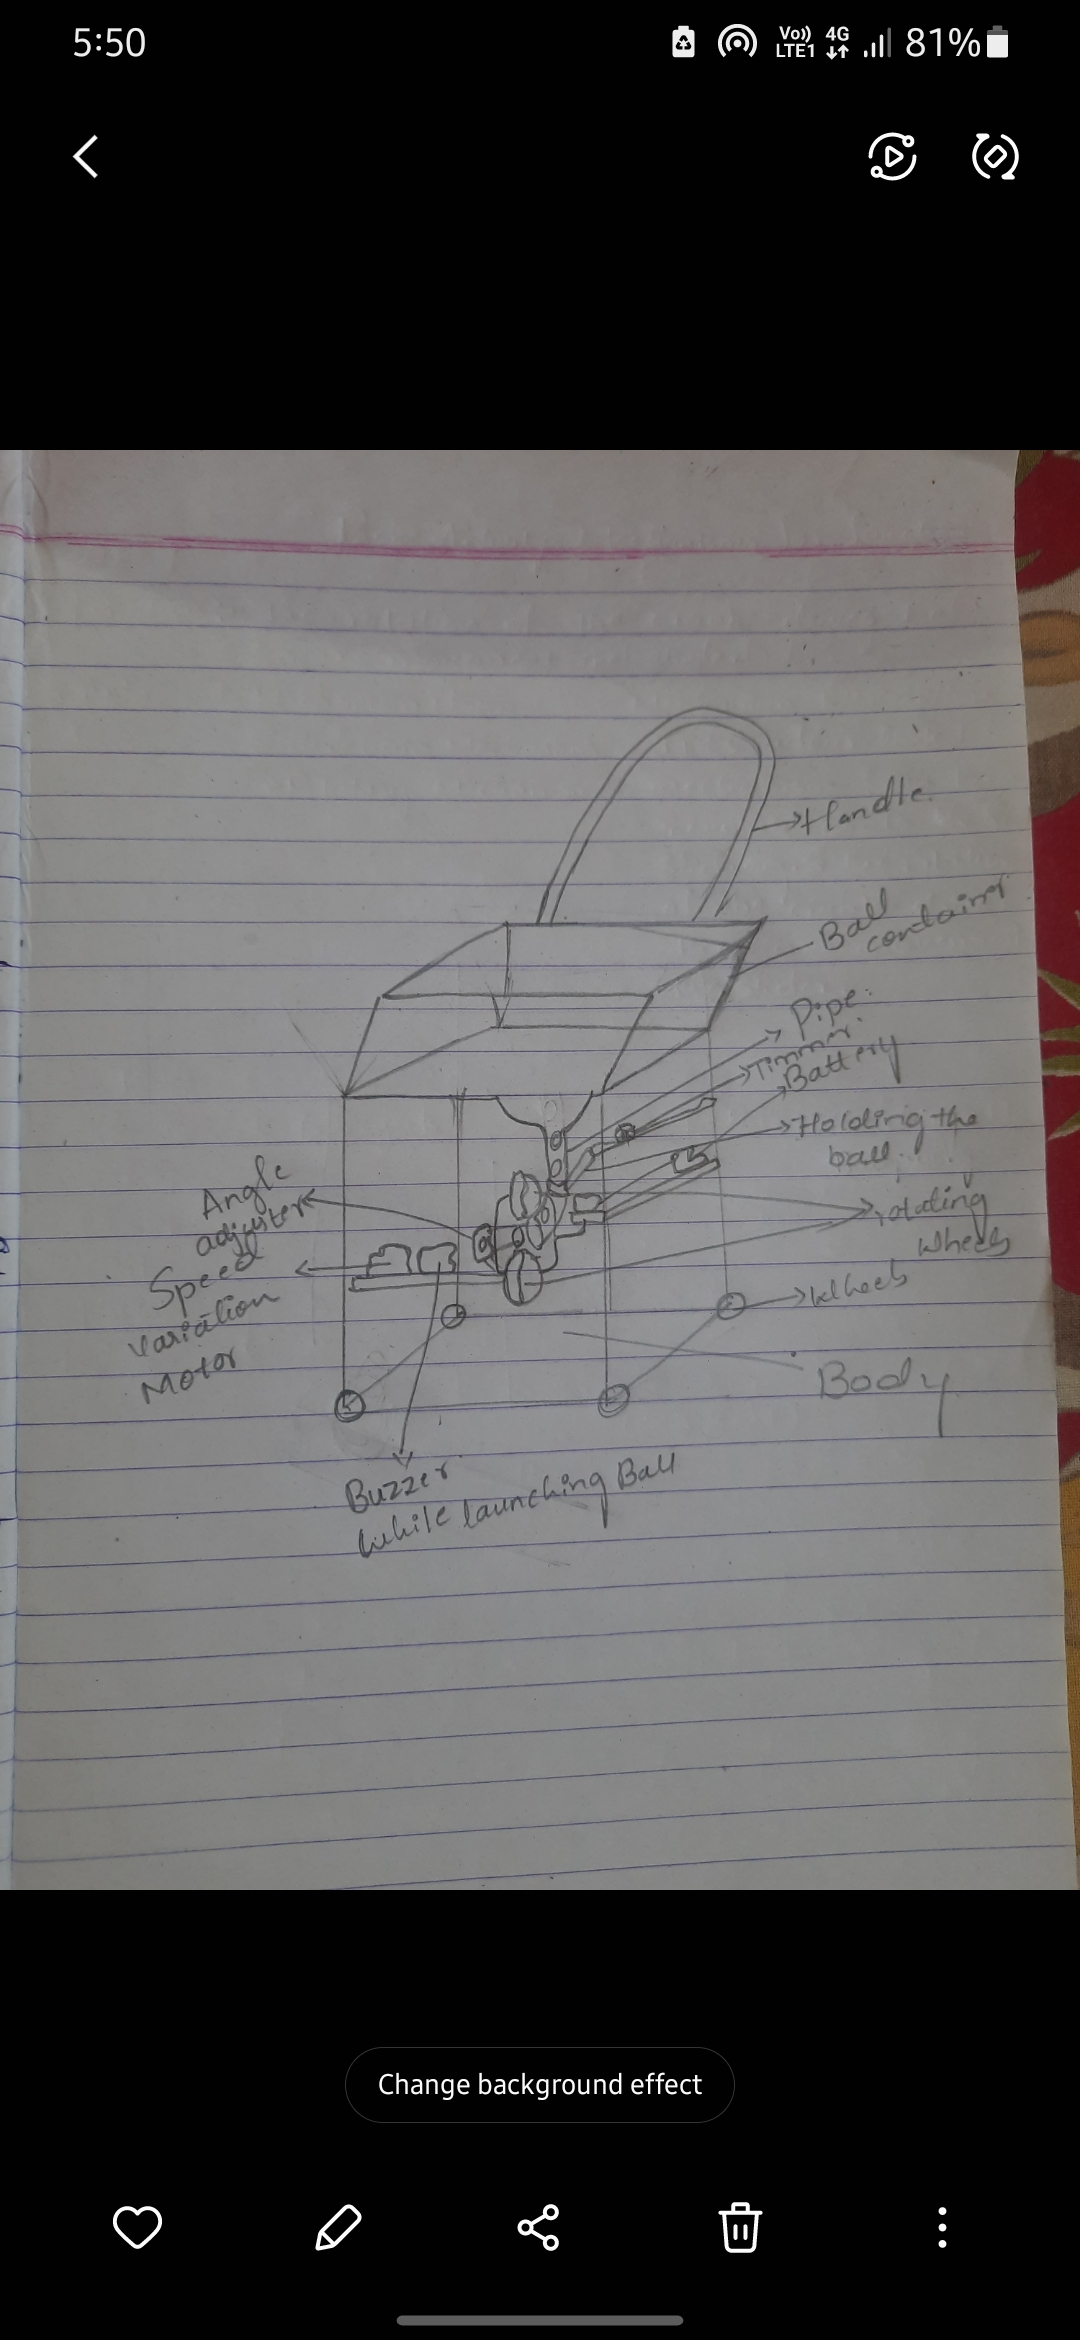 5:50
Vo)) LTE1 4G 81%
Handle
Ball
container
Pipe
Timmer
Battery
Holding the
ball
rotating
Wheels
Wheels
Body
Angle
adjuster
Speed
variation
Motor
Buzzer
While launching Ball
Change background effect